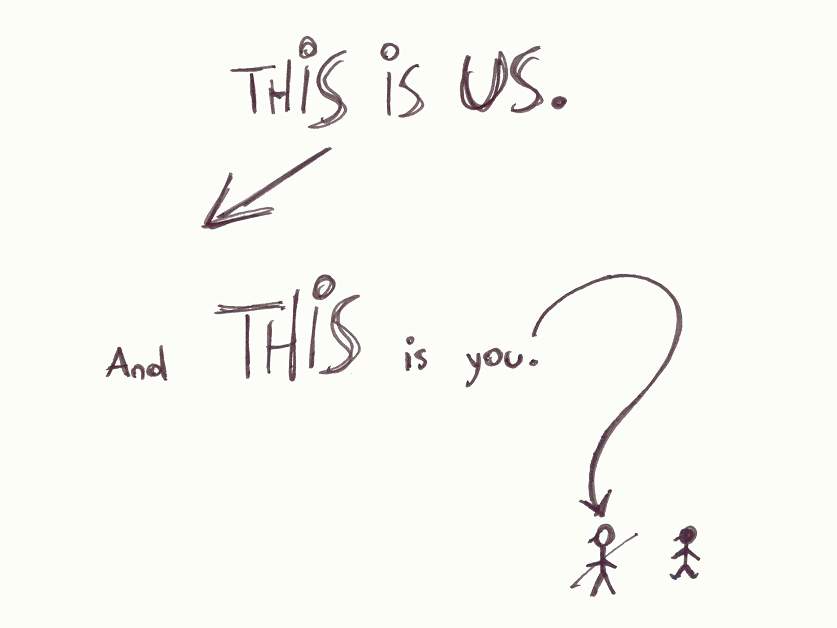 THiS iS US.
And THiS is you.